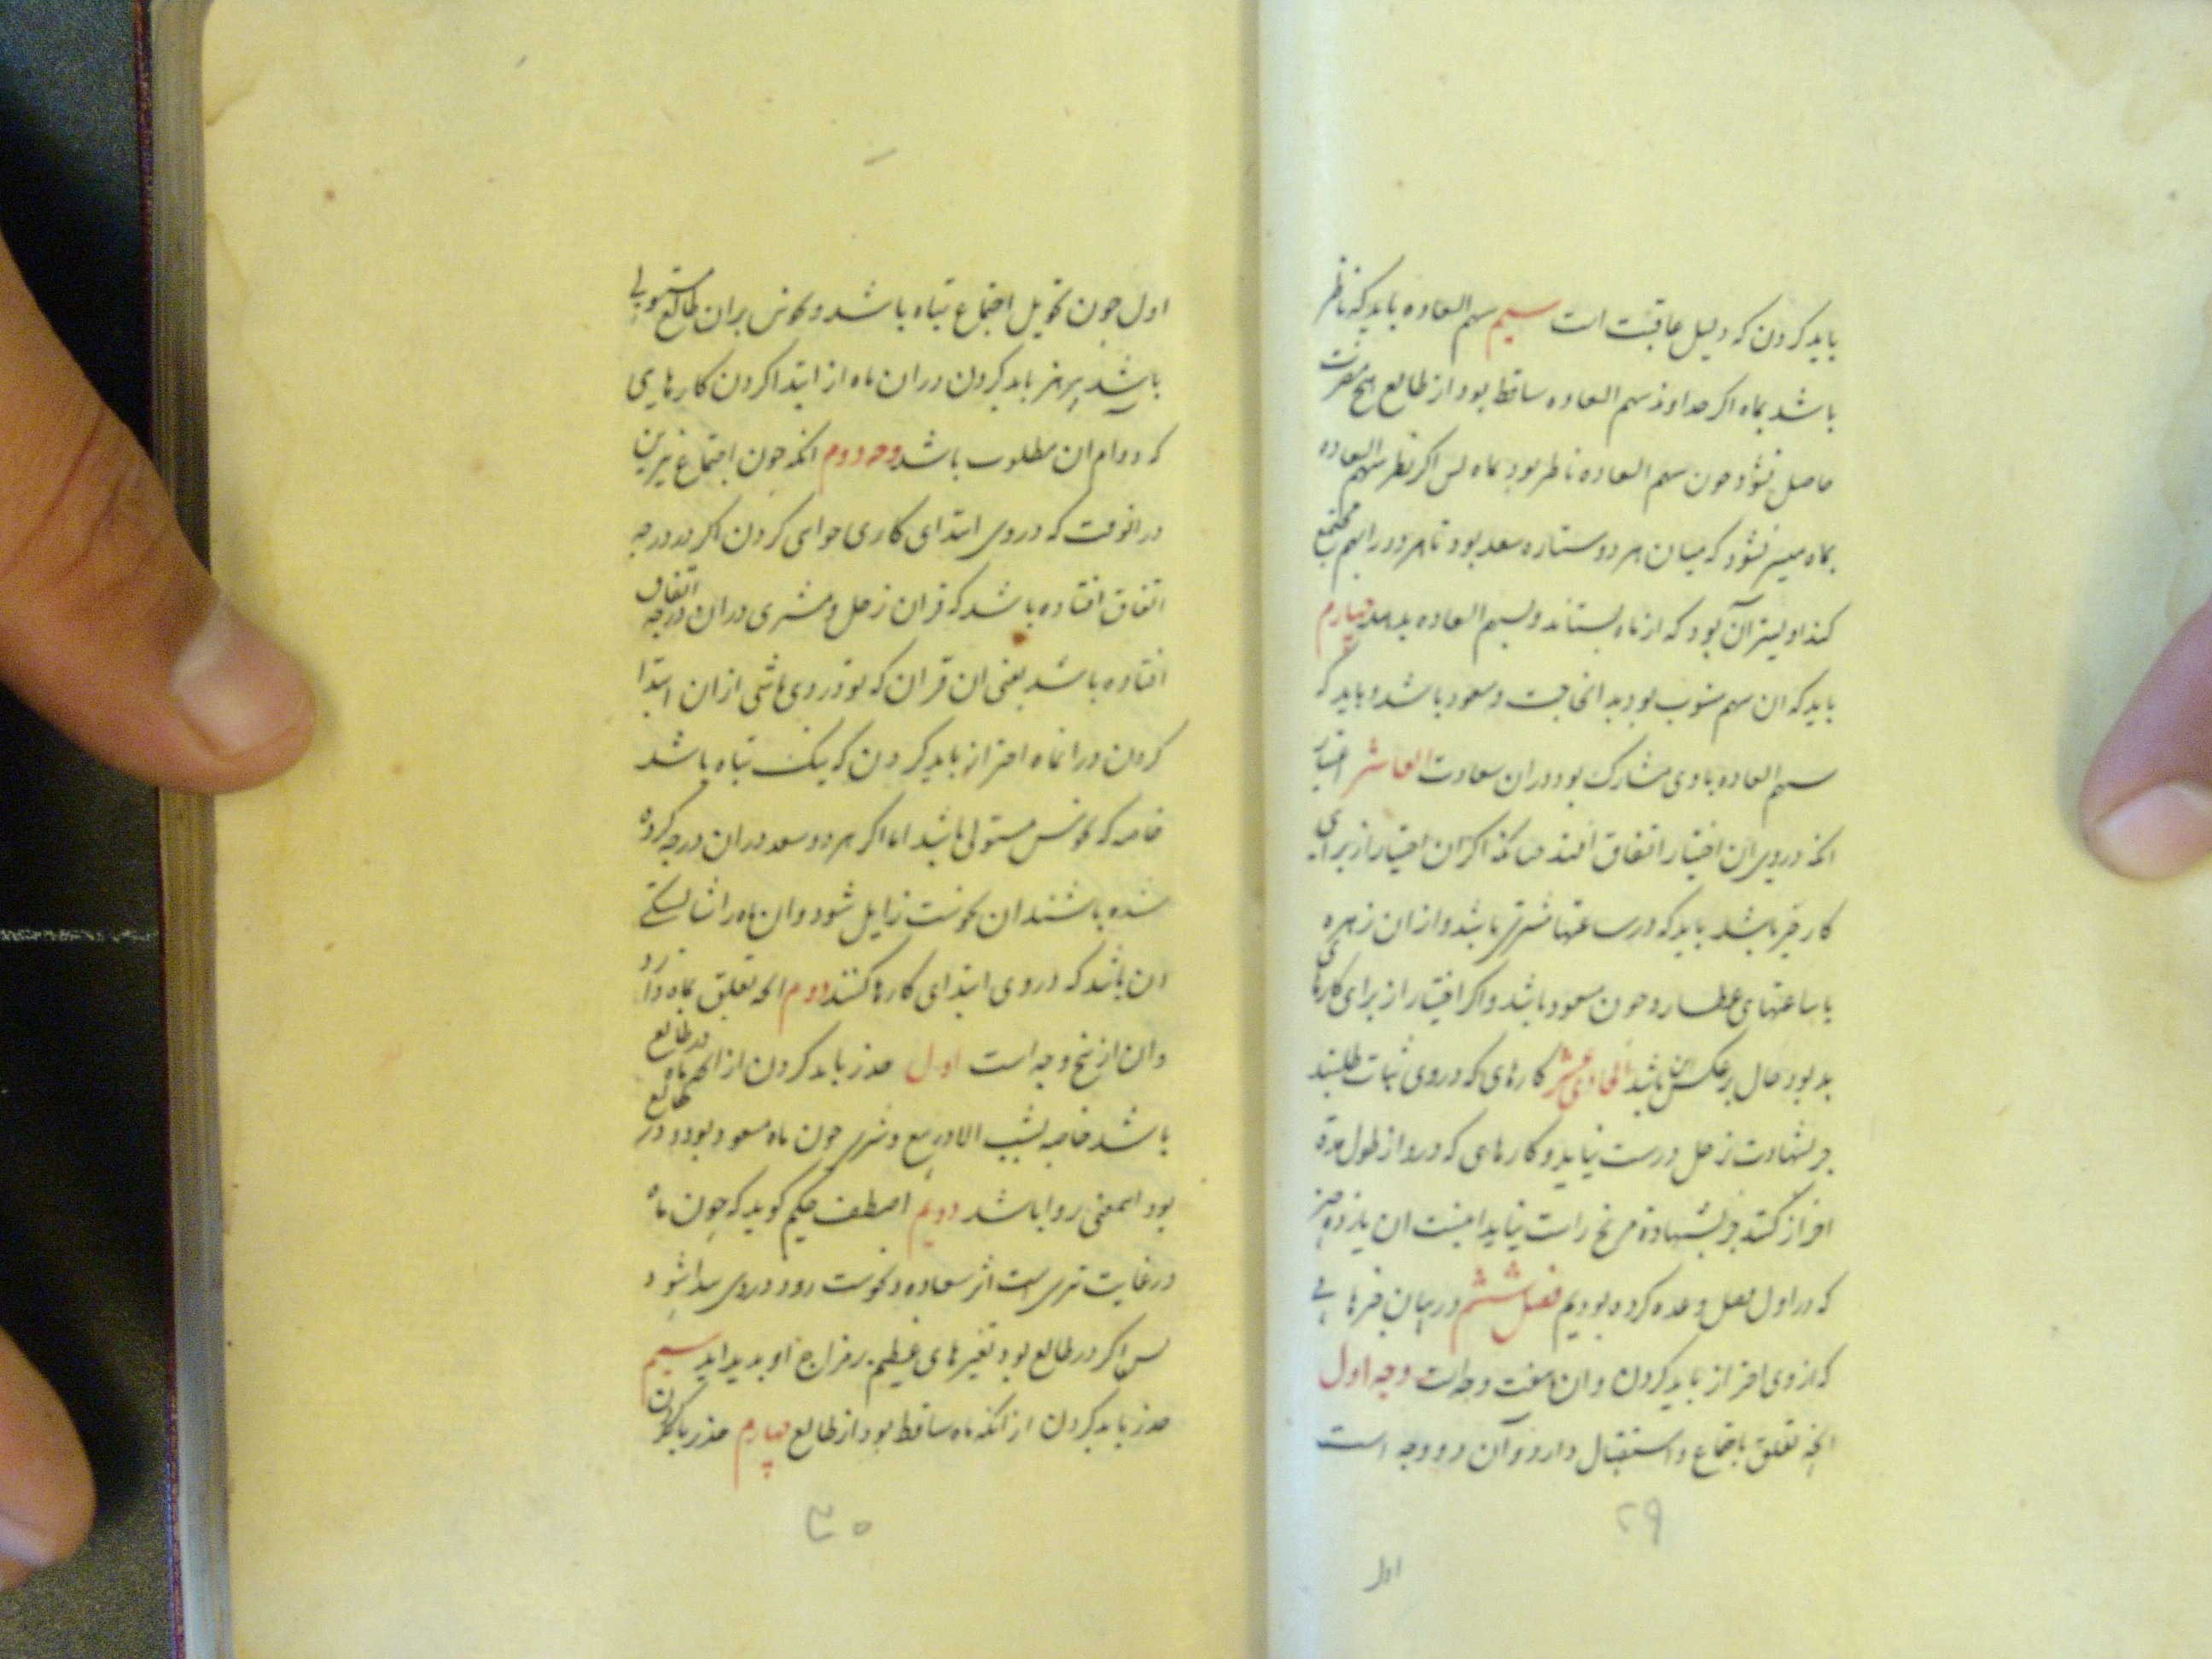 باید کردن که دلیل عاقبت است سیم سهم السعاده باید که ناظر
باشد بماه اکر خداوند سهم السعاده ساقط بود از طالع هیچ مضرت
حاصل نشود چون سهم السعاده ناظر بود بماه پس اکر نظر سهم السعاده
بماه میسر نشود که میان هر دو ستاره سعد بود تا هر دو را بهم مجتمع
کند اولیتر آن بود که از ماه بستاند و بسهم السعاده بدهد چهارم
باید که ان سهم منسوب بود بدان حاجت و مسعود باشد و باید که
سهم السعاده با وی مشارک بود دران سعادت العاشر اختیار
انکه در وی ان اختیار اتفاق افتد چنانکه اکر ان اختیار از برای
کار خیر باشد باید که در ساعتها مشتری باشد و از ان زهره
یا ساعتهای عطارد چون مسعود باشد و اکر اختیار از برای کارهای
بد بود حال برعکس این باشد الحادی عشر کارهای که در وی ثبات طلبند
جز بشهادت زحل درست نیاید و کارهای که درو از طول مدة
احتراز کنند جز بشهادة مریخ راست نیاید اینست ان یازده چیز
که در اول فصل وعده کرده بودیم فصل ششم در بیان چیزهایی
که از وی احتراز باید کردن و ان هفت وجه است وجه اول
انچه تعلق باجتماع و استقبال دارد و آن دو وجه است
۲۹
اول
اول چون تحویل اجتماع تباه باشد و نحوس بران طالع مستولی
باشد پرهیز باید کردن دران ماه از ابتدا کردن کارهایی
که دوام ان مطلوب باشد وجه دوم انکه چون اجتماع نیرین
درانوقت که در وی ابتدای کاری خواهی کردن اکر در درجه
اتفاق افتاده باشد که قران زحل و مشتری دران درجه اتفاق
افتاده باشد یعنی ان قران که تو در وی باشی از ان ابتدا
کردن درانماه احتراز باید کردن که نیک تباه باشد
خاصه که نحوس مستولی باشد اما اکر هر دو سعد دران درجه کرد
شده باشند ان نحوست زایل شود و ان ماه را شایستکی
ان باشد که در وی ابتدای کارها کنند دوم انچه تعلق بماه دارد
و ان از پنج وجه است اول حذر باید کردن از انکه ماه در طالع
باشد خاصه بشب الا در ربیع و شری چون ماه مسعود بود و در طالع
بود این معنی روا باشد دویم اصطفن حکیم کوید که چون ماه
در غایت تری است اثر سعاده و نحوست زود در وی پیدا شود
پس اکر در طالع بود تغیرهای عظیم در مزاج او بدید اید سیم
حذر باید کردن از انکه ماه ساقط بود از طالع چهارم حذر باید کردن
۳۰